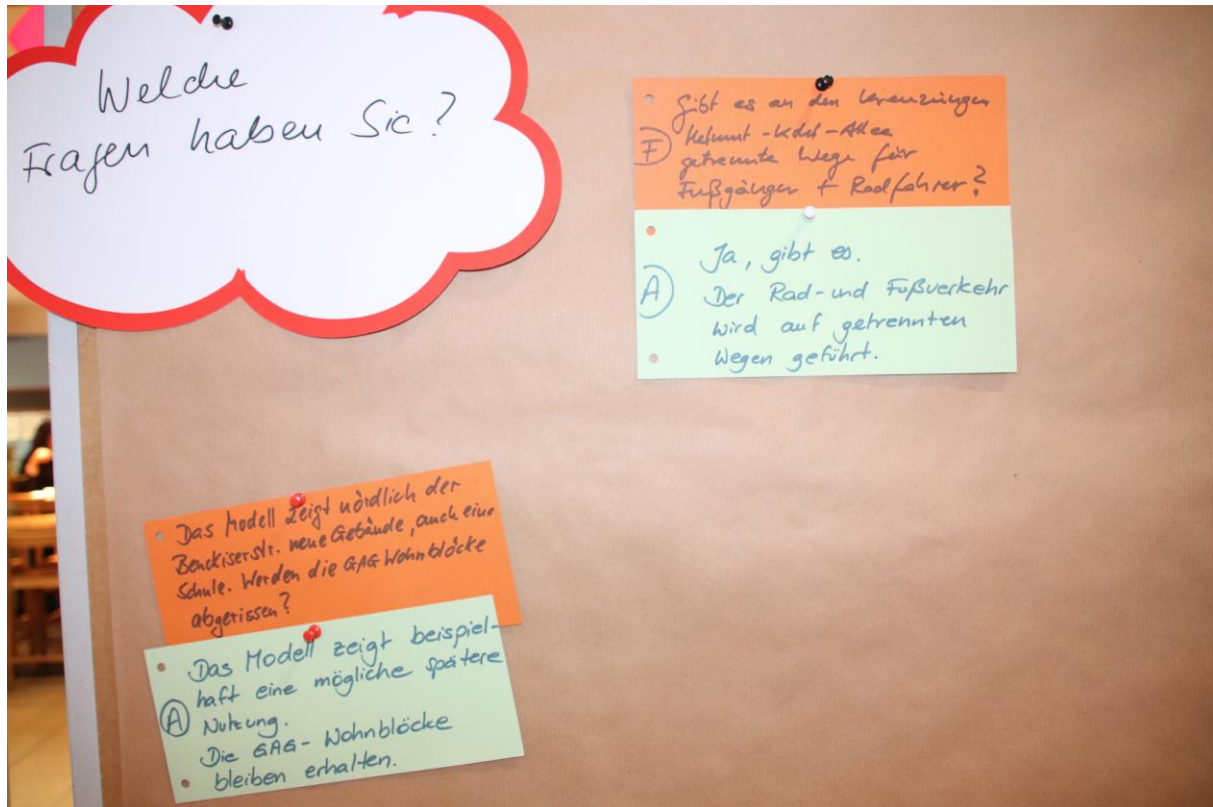 Welche
Fragen haben Sie?
Gibt es an den Kreuzungen
Helmut-Kohl-Allee
F getrennte Wege für
Fußgänger + Radfahrer?
Ja, gibt es.
A Der Rad- und Fußverkehr
wird auf getrennten
Wegen geführt.
Das Modell zeigt nördlich der
Benckiserstr. neue Gebäude, auch eine
Schule. Werden die GAG Wohnblöcke
abgerissen?
Das Modell zeigt beispiel-
haft eine mögliche spätere
A Nutzung.
Die GAG-Wohnblöcke
bleiben erhalten.